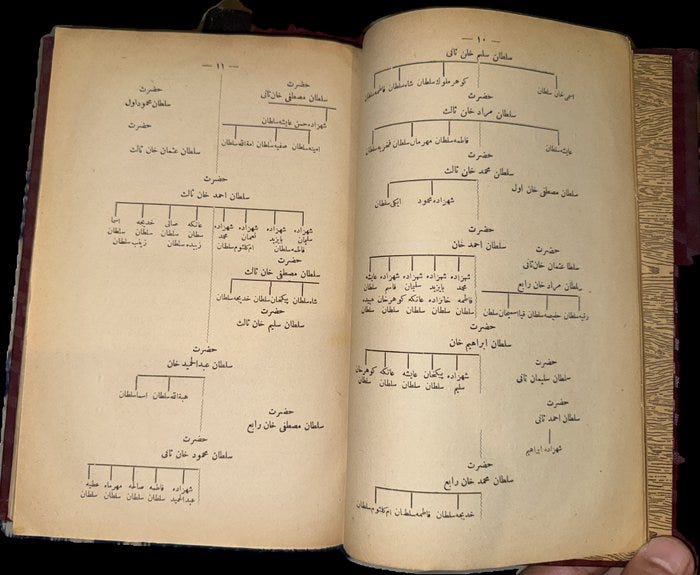 — ١٠ —
سلطان سليم خان ثانى
اسمى خان سلطان
كوهر ملوك سلطان شاه سلطان فاطمه سلطان
حضرت
سلطان مراد خان ثالث
عايشه سلطان
فاطمه سلطان مهرماه سلطان فخريه سلطان
حضرت
سلطان محمد خان ثالث
سلطان مصطفى خان اول
شهزاده محمود
سلطان
حضرت
سلطان احمد خان
حضرت
سلطان عثمان خان ثانى
سلطان مراد خان رابع
شهزاده محمد شهزاده بايزيد شهزاده سليمان شهزاده قاسم عايشه سلطان
فاطمه سلطان خانزاده سلطان عاتكه سلطان كوهرخان سلطان هبيده سلطان
رقيه سلطان حفيصه سلطان
حضرت
سلطان ابراهيم خان
حضرت
سلطان سليمان ثانى
شهزاده سليم عايشه سلطان عاتكه سلطان كوهرخان سلطان
حضرت
سلطان احمد ثانى
شهزاده ابراهيم
حضرت
سلطان محمد خان رابع
خديجه سلطان فاطمه سلطان ام كلثوم سلطان
— ١١ —
حضرت
سلطان مصطفى خان ثانى
حضرت
سلطان محمود اول
شهزاده حسن عايشه سلطان
امينه سلطان صفيه سلطان امة الله سلطان
حضرت
سلطان عثمان خان ثالث
حضرت
سلطان احمد خان ثالث
شهزاده سليمان شهزاده بايزيد شهزاده نعمان شهزاده محمد عاتكه سلطان صالحه سلطان خديجه سلطان اسما سلطان
فاطمه سلطان ام كلثوم سلطان زبيده سلطان زينب سلطان
حضرت
سلطان مصطفى خان ثالث
شاه سلطان بيكخان سلطان خديجه سلطان
حضرت
سلطان سليم خان ثالث
حضرت
سلطان عبدالحميد خان
هبة الله سلطان اسما سلطان
حضرت
سلطان مصطفى خان رابع
حضرت
سلطان محمود خان ثانى
شهزاده عبدالحميد فاطمه سلطان صالحه سلطان مهرماه سلطان عطيه سلطان